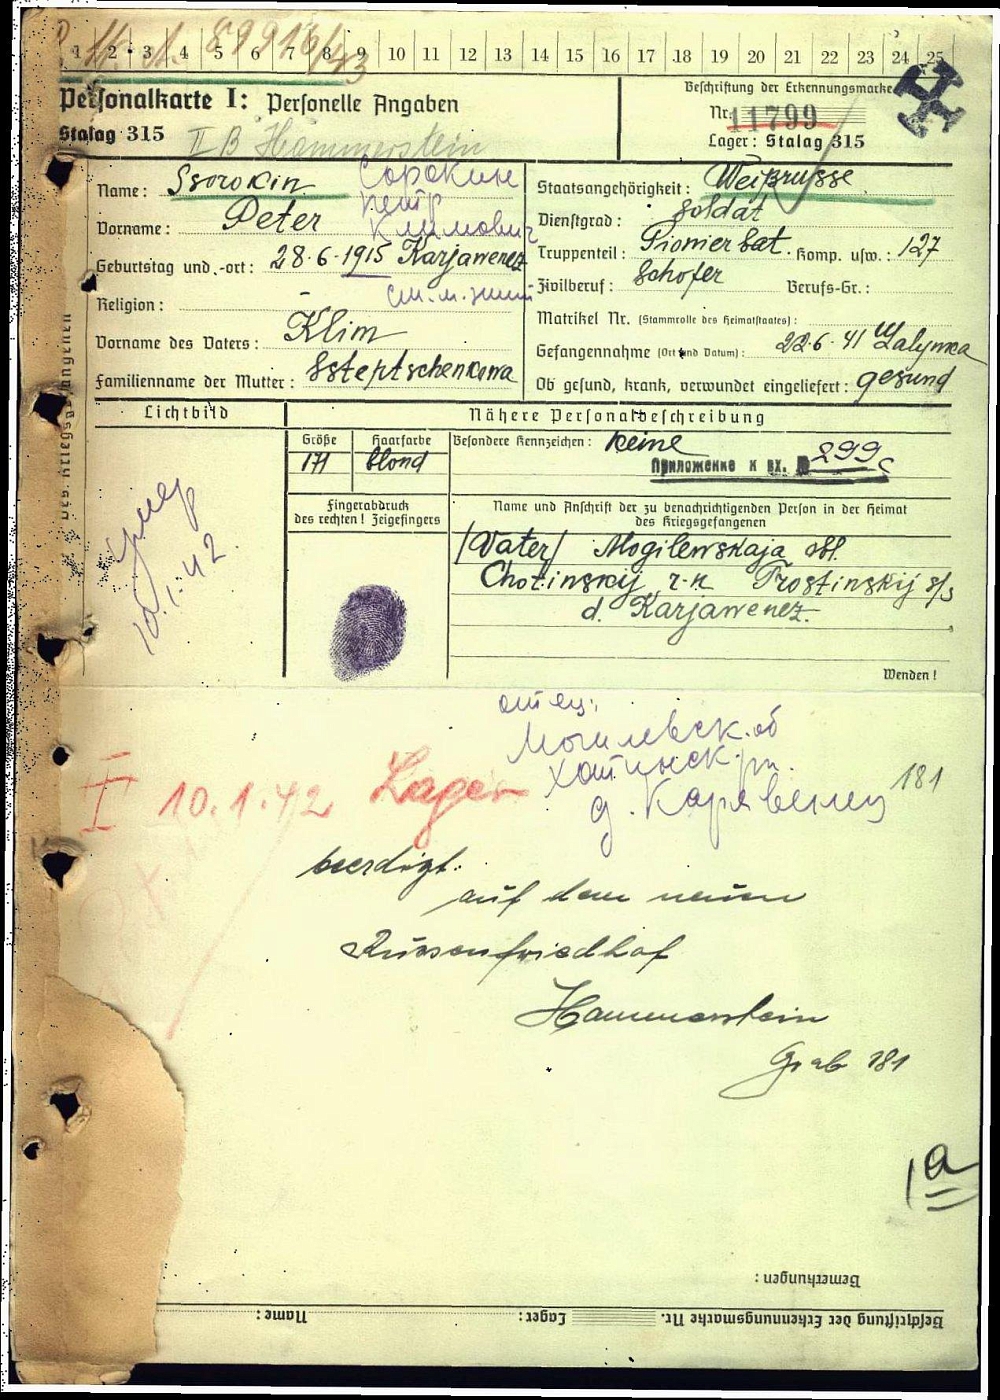 1 2 3 4 5 6 7 8 9 10 11 12 13 14 15 16 17 18 19 20 21 22 23 24 25
Personalkarte I: Personelle Angaben
Stalag 315 II B Hammerstein
Beschriftung der Erkennungsmarke
Nr. 11799
Lager: Stalag 315
Name: Ssorokin Сорокин
Vorname: Peter Петр
Климович
Geburtstag und -ort: 28.6.1915 Karjawenez
Religion: –
Vorname des Vaters: Klim
Familienname der Mutter: Ssteptschenkowa
Staatsangehörigkeit: Weißrusse
Dienstgrad: Soldat
Truppenteil: Pionier bat. Komp. usw.: 127
Zivilberuf: Schofer Berufs-Gr.:
Matrikel Nr. (Stammrolle des Heimatstaates):
Gefangennahme (Ort und Datum): 22.6.41
Ob gesund, krank, verwundet eingeliefert: gesund
des Kriegsgefangenen
Lichtbild
Nähere Personalbeschreibung
Größe Haarfarbe Besondere Kennzeichen: keine
171 blond
Приложение к вх. № 299c
Fingerabdruck
des rechten! Zeigefingers
Name und Anschrift der zu benachrichtigenden Person in der Heimat
des Kriegsgefangenen
/Vater/ Mogilewskaja obl.
Chotinskij r-n Trostinskij s/s
d. Karjawenez.
Wenden!
умер
10.1.42
отец:
Могилевск. об
Хотинск. рн.
д. Карявенец
181
I 10.1.42 Lager
beerdigt:
auf dem neuen
Russenfriedhof
Hammerstein
Grab 181
1a
Bemerkungen:
Beschriftung der Erkennungsmarke Nr. Lager: Name: